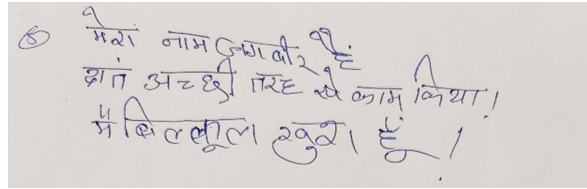 ⑤ मेरा नाम जगवीर हैं
दातं अच्छी तरह से काम किया।
मैं बिल्लूल खुश हूँ।